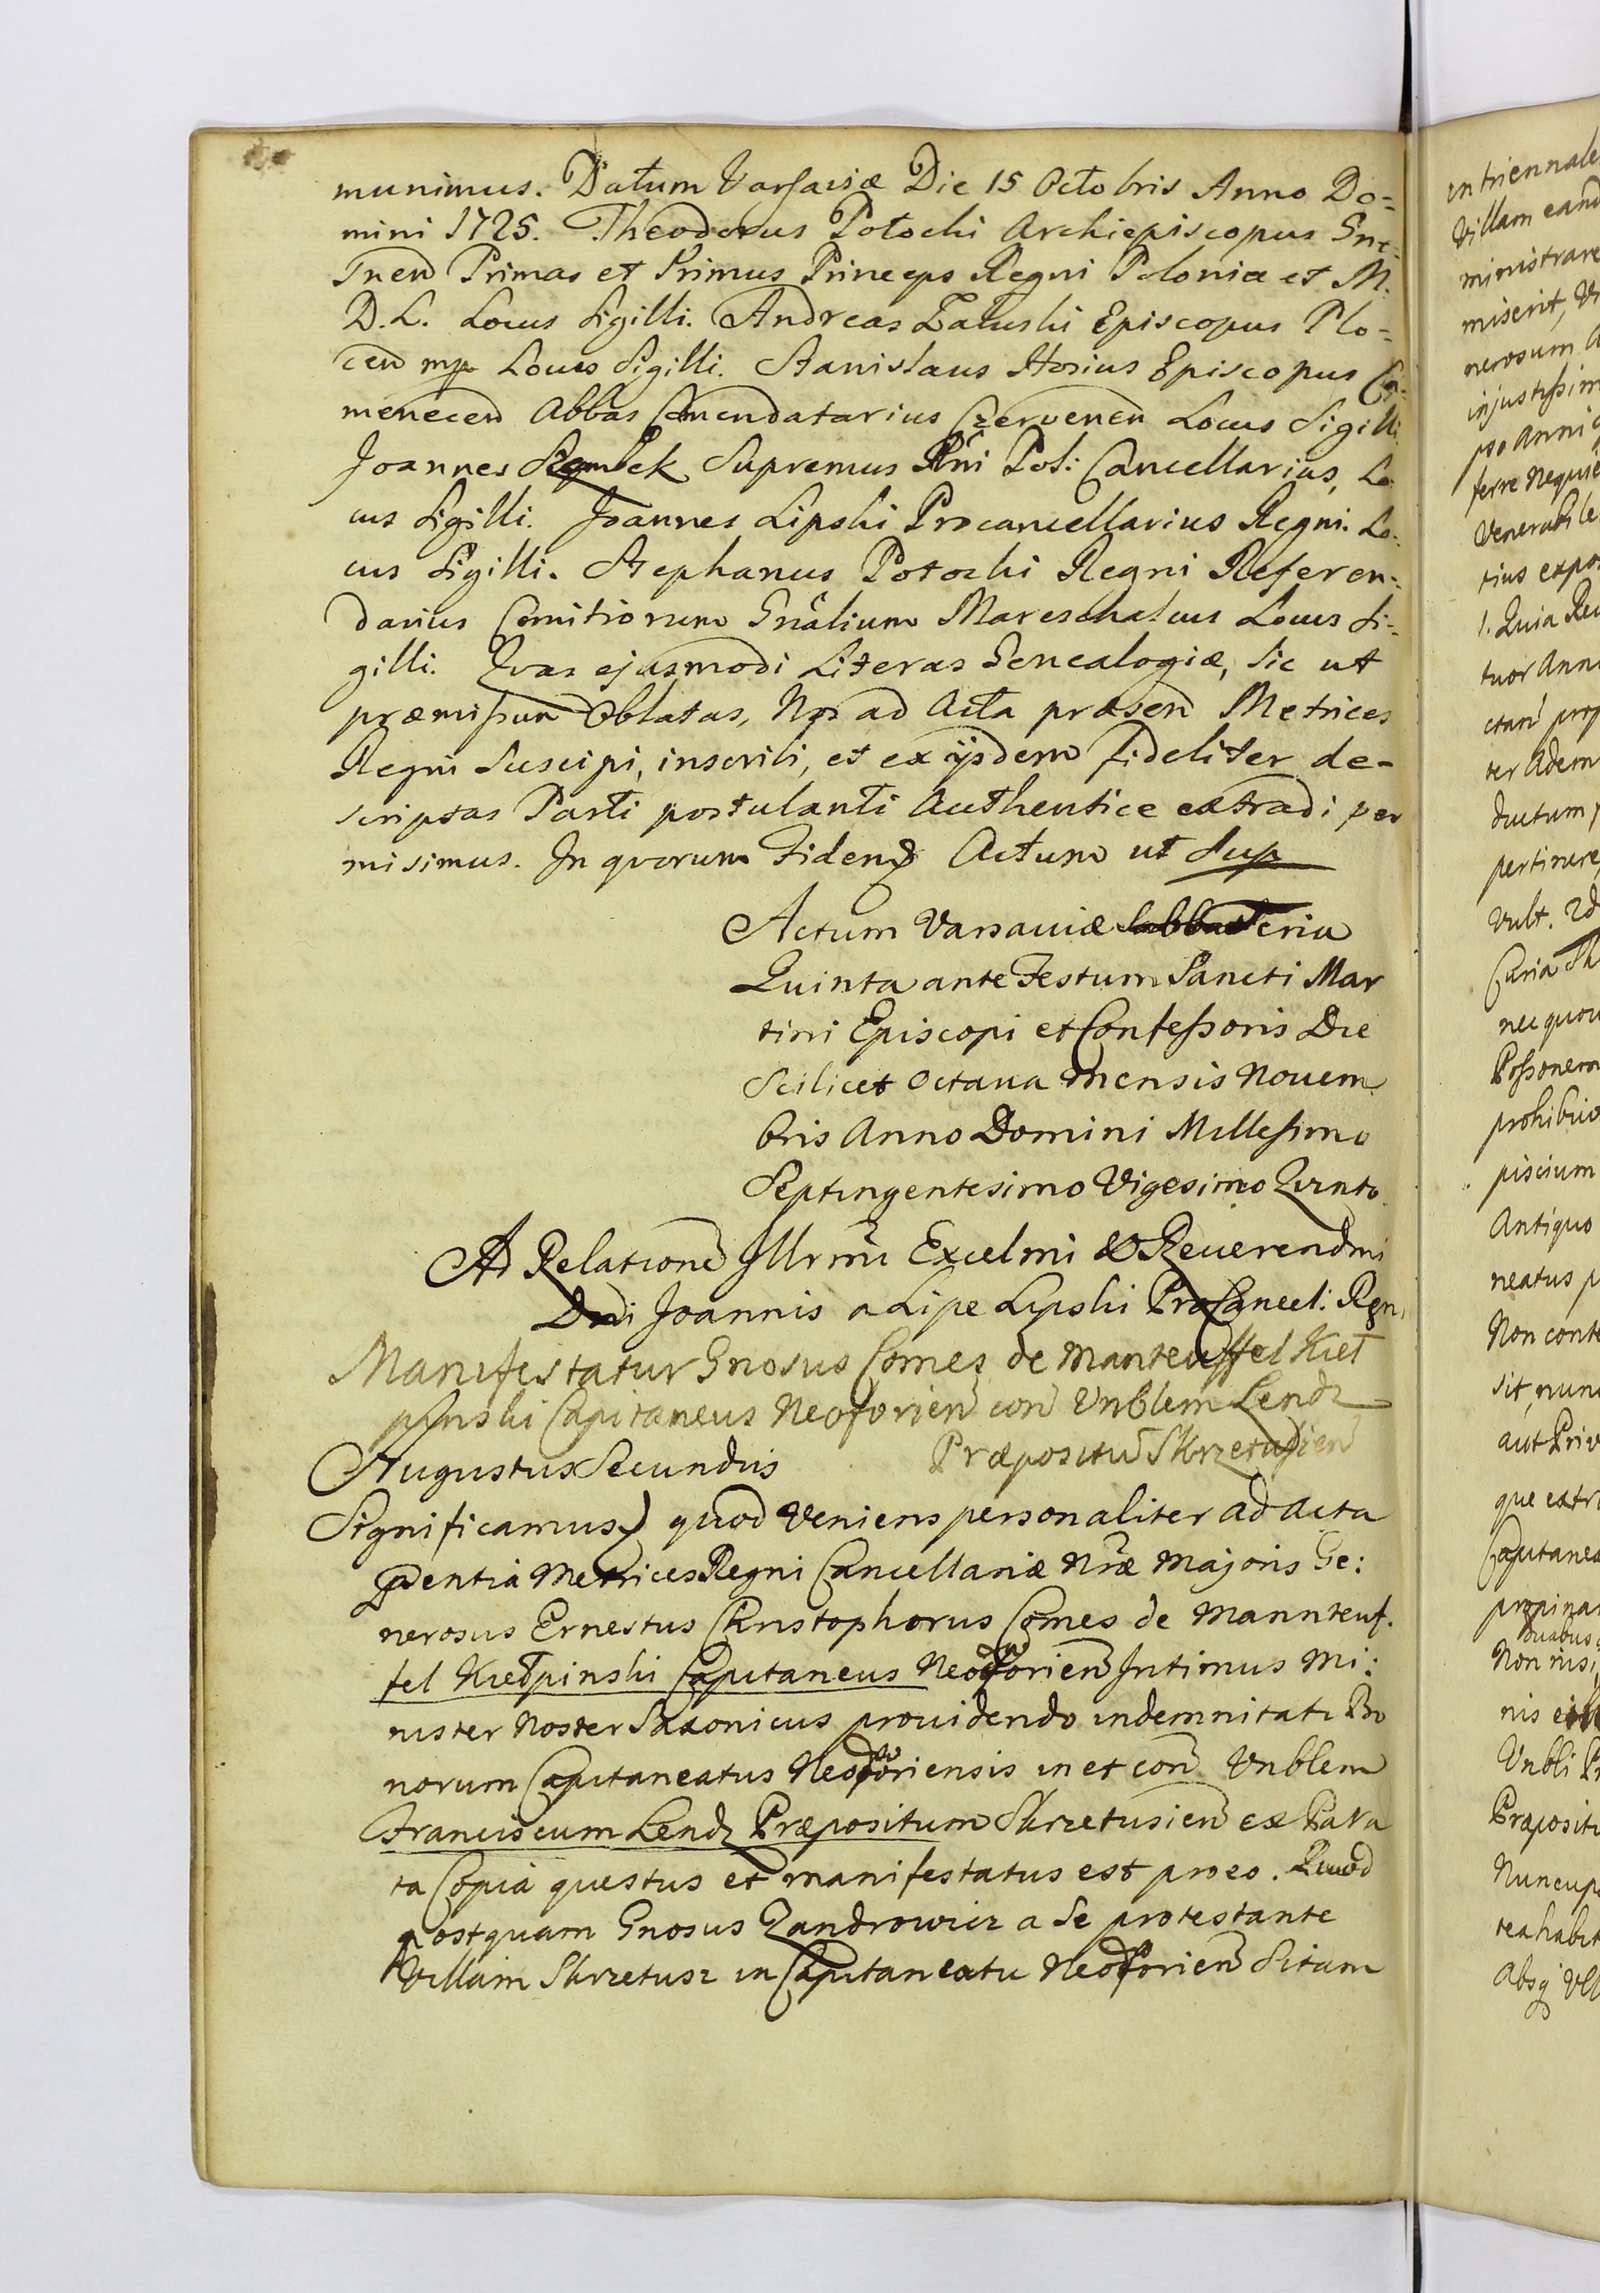 munimus. Datum Varsaviæ Die 15 Octobris Anno Do=
mini 1725. Theodorus Potocki Archiepiscopus Gne=
snen Primas et Primus Princeps Regni Poloniæ et M.
D. L. Locus Sigilli. Andreas Załuski Episcopus Plo=
cen mp Locus Sigilli. Stanislaus Hosius Episcopus Ca=
menecen Abbas Comendatarius Czervenen Locus Sigilli
Joannes Szembek Supremus Rñi Pol: Cancellarius, Lo=
cus Sigilli. Joannes Lipski Procancellarius Regni. Lo=
cus Sigilli. Stephanus Potocki Regni Referen=
darius Comitiorum Gnãlium Mareschalcus Locus Si=
gilli. Qvas ejusmodi Literas Genealogiæ, Sic ut
præmissum Oblatas, Nos ad Acta præsen Metrices
Regni Suscipi, inscribi, et ex ijsdem fideliter de=
scriptas Parti postulanti Authentice extradi per
misimus. In qvorum Fidem Actum ut Sup
Actum Varsaviæ Feria
Quinta ante Festum Sancti Mar
tini Episcopi et Confessoris Die
Scilicet Octava Mensis Novem
bris Anno Domini Millesimo
Septingentesimo Vigesimo Qvinto.
Ad Relationē Illrmi Excelmi & Reverendmi
Dni Joannis a Lipe Lipski ProCancel: Regni
Manifestatur Gnosus Comes de Manteuffel Kieł
pinski Capitaneus Neoforien con Vnblem Lendz
Præpositū Skrzetusien
Augustus Secundus
Significamus) quod Veniens personaliter ad Acta
pñtia Metrices Regni Cancellariæ Nræ Majoris Ge:
nerosus Ernestus Christophorus Comes de Mannteuf.
fel Kiełpinski Capitaneus Neoforien Intimus Mi:
nister Noster Saxonicus providendo indemnitati Bo
norum Capitaneatus Neoforiensis in et con Vnblem
Franciscum Lendz Præpositum Skrzetusien ex Parva
ta Copia questus et manifestatus est pro eo. Quod
postquam Gnosus Zandrowicz a Se protestante
Villam Skrzetusz in Capitaneatu Neoforien Sitam
in triennale
Villam eand
ministrare
miserit, Vn
nerosum
injustissim
pso Anni
ferre Nequie
Venerabile
tius expos
1. Quia Rev
tuor Anni
ctam prop
ter Adem
ductum
pertinere,
Vult. 2d
Curia Sk
nec quov
Possonem
prohibuo
piscium
Antiquo
neatus p
Non conte
sit, nunc
aut Priv
que extr
Capitanea
propinar
duabus
Non nisi
nis
Vnbli Pr
Præpositu
Nuncupa
tea habit
absq Vll